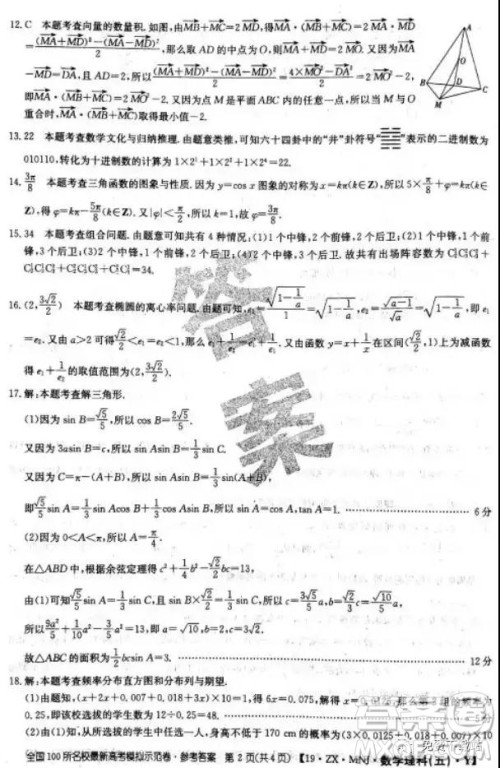 12.C 本题考查向量的数量积.如图,由MB+MC=2MD,得MA·(MB+MC)=2MA·MD
=((MA+MD)²-(MA-MD)²)/2,那么取AD的中点为O,则MA+MD=2MO.又因为MA
-MD=DA,且AD=2,所以((MA+MD)²-(MA-MD)²)/2=(4×MO²-DA²)/2=2MO²-2,
即MA·(MB+MC)=2MO²-2,又因为点M是平面ABC内的任意一点,所以当M与O
重合时,MA·(MB+MC)取得最小值-2.
A
O
B
D
C
M
13.22 本题考查数学文化与归纳推理.由题意类推,可知六十四卦中的“井”卦符号“”表示的二进制数为
010110,转化为十进制数的计算为1×2¹+1×2²+1×2⁴=22.
14.3π/8 本题考查三角函数的图象与性质.因为y=cos x图象的对称为x=kπ(k∈Z),所以5×π/8+φ=kπ(k∈
Z),得φ=kπ-5π/8(k∈Z).又|φ|<π/2,所以k=1,故φ=3π/8.
15.34 本题考查组合问题.由题意可知共有4种情况:(1)1个中锋,2个前锋,2个后卫;(2)1个中锋,1个前
锋,3个后卫;(3)2个中锋,1个前锋,2个后卫;(4)2个中锋,3个后卫.故共有出场阵容数为
=34.
16.(2,3√2/2) 本题考查椭圆的离心率问题.由题可知,e₂=√(1-1/a)/1=√(1-1/a),e₁=√(a-1)/√a=√(1-1/a),即e₁
=e₂.又由a>2可得√2/2<e₁=e₂<1,那么e₁+1/e₂=e₁+1/e₁.又由函数y=x+1/x在区间(√2/2,1)上为减函数
得e₁+1/e₂的取值范围为(2,3√2/2).
17.解:本题考查解三角形.
(1)因为sin B=√5/5,所以cos B=2√5/5.
又因为3asin B=c,所以sin Asin B=1/3 sin C.
又因为C=π-(A+B),所以sin Asin B=1/3 sin(A+B),
即√5/5 sin A=1/3 sin Acos B+1/3 cos Asin B,所以sin A=cos A,tan A=1. 6分
(2)因为0<A<π,所以A=π/4.
在△ABD中,根据余弦定理得c²+1/4 b²-√2/2 bc=13,
由(1)可知√5/5 sin A=1/3 sin C,且sin B×√2/2=1/3 sin C,所以c=3√5/5 a,b=√2/3 c=√10/5 a,
所以9a²/5+1/10 a²-3/5 a²=13,即a=√10,b=2,c=3√2.
故△ABC的面积为1/2 bcsin A=3. 12分
18.解:本题考查频率分布直方图和分布列与期望.
(1)由题知,(x+2x+0.007+0.018+3x)×10=1,得6x=0.075,解得x=
0.25,即该校选拔的学生数为
(2)由(1)知,从所选拔的学生中任选一人,身高不低于170 cm的概率为(3×0.0125+0.018+0.007)×10
全国100所名校最新高考模拟示范卷·参考答案 第2页(共4页) 【19·ZX·MNJ·数学理科(五)·Y】
答案